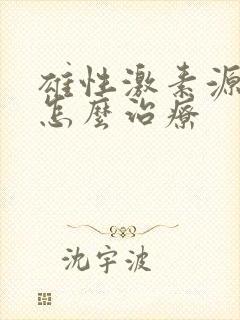 雄性激素源
怎麼治療
沈宇波